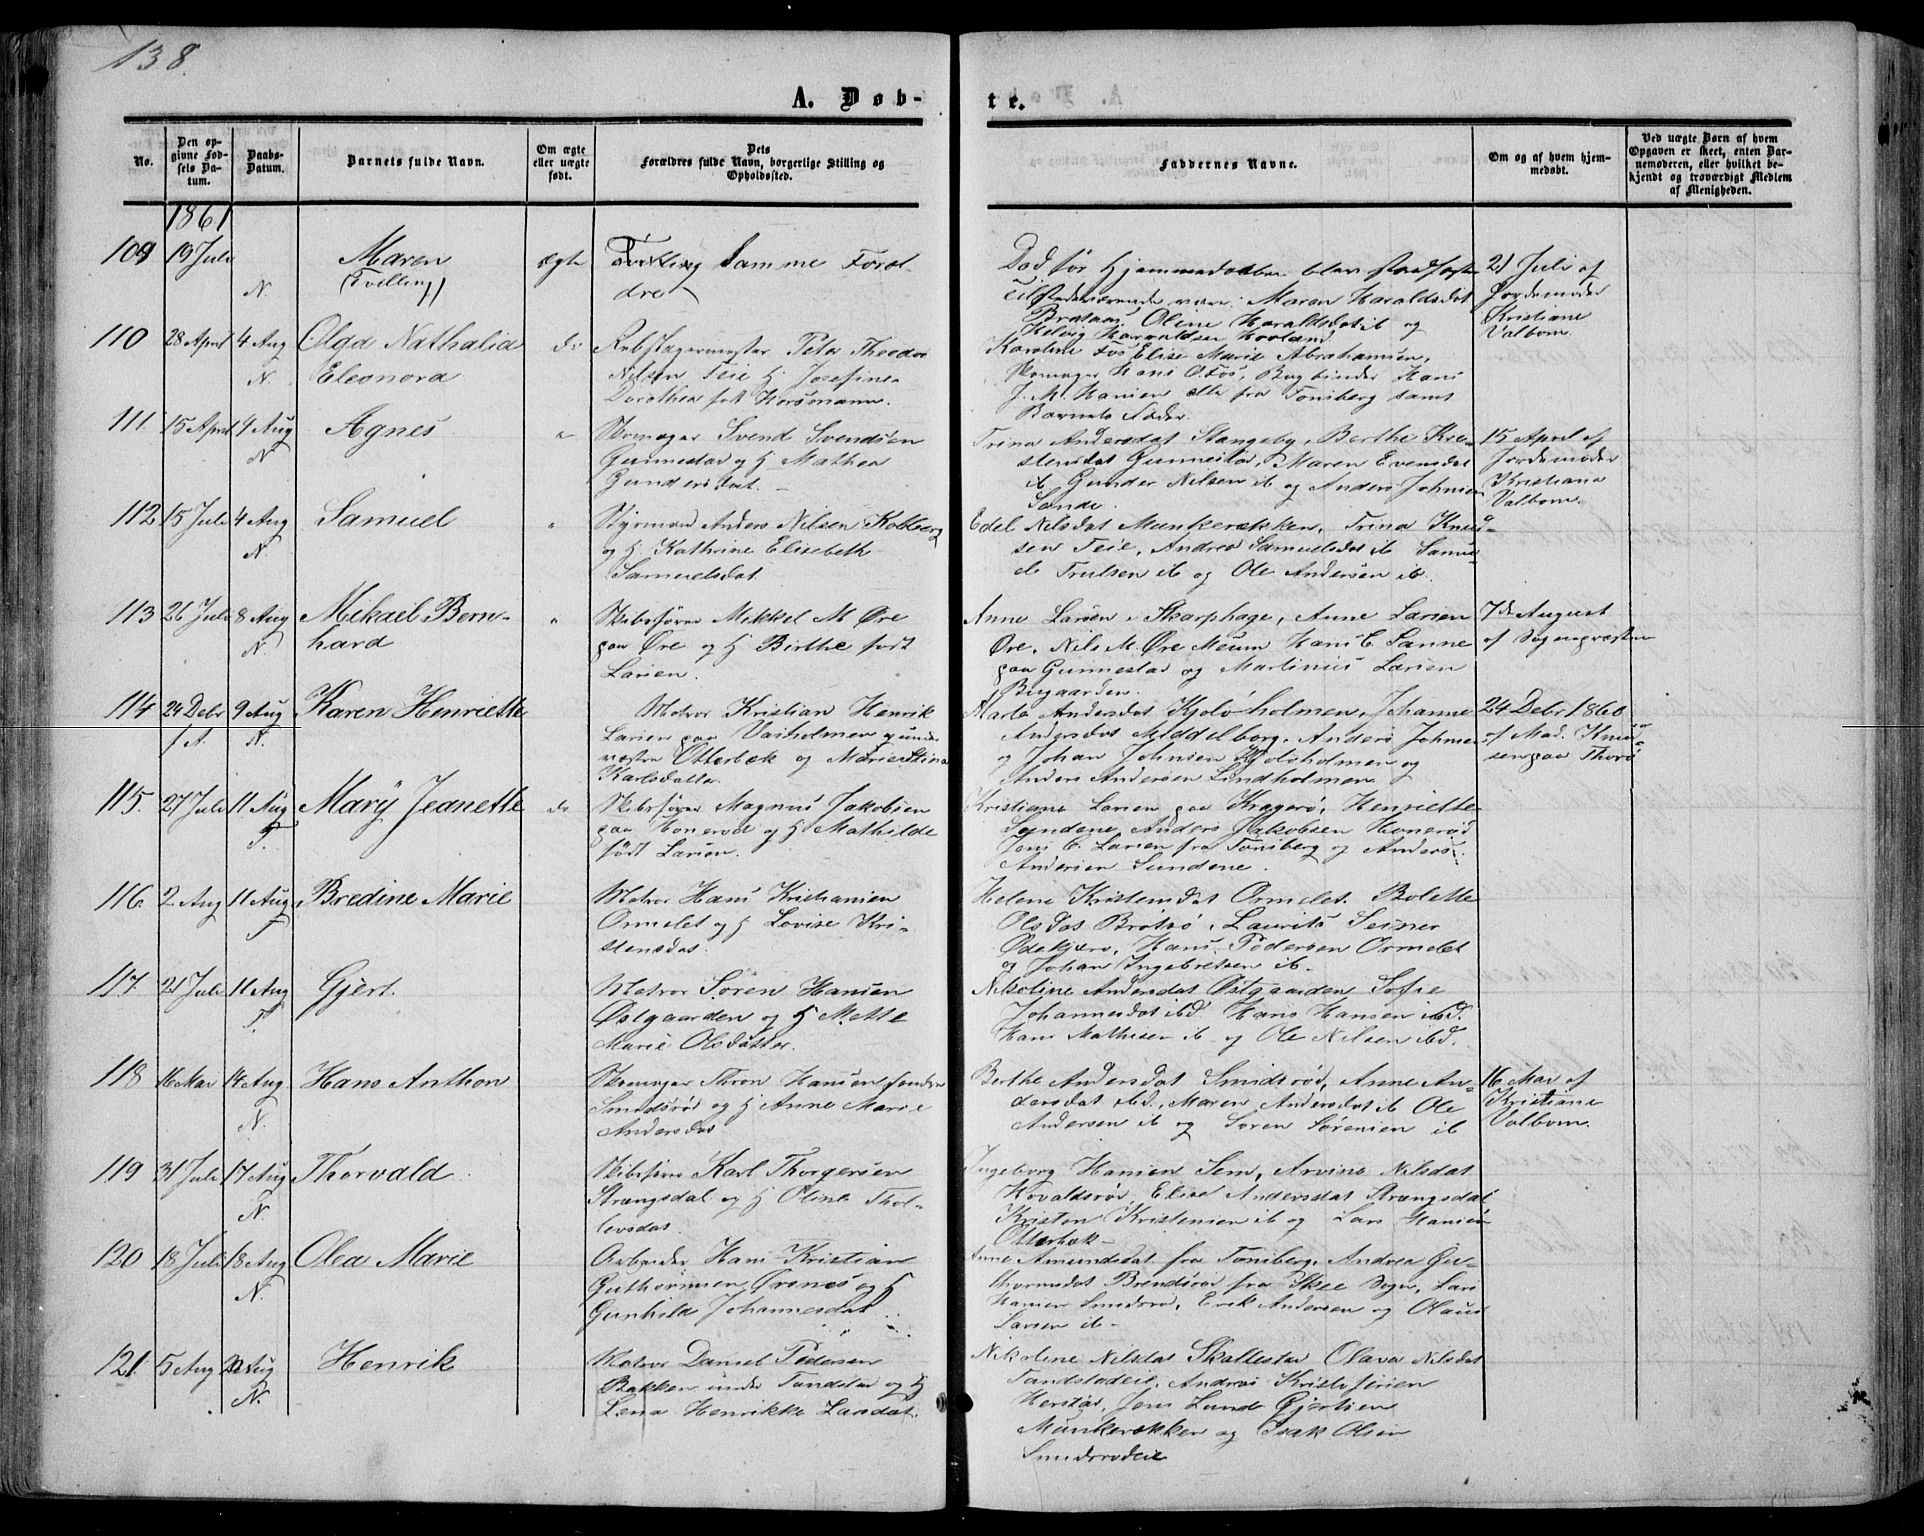 138.
A. Døbte.
No.
Den opgivne Fødsels Datum.
Daabs-Datum.
Barnets fulde Navn.
Om ægte eller uægte født.
Dets Forældres fulde Navn, borgerlige Stilling og Opholdssted.
Faddernes Navne.
Om og af hvem hjemmedøbt.
Ved uægte Børn af hvem Opgaven er skeet, enten Barnemoderen, eller hvilket bekjendt og troværdigt Medlem af Menigheden.
1861
109 19 Juli
N.
Maren
(Tvilling)
ægte
Samme Foræl-
dre
Død før Hjemmedaaben blev stadfæstet
Tilstedeværende vare: Maren Haraldsdat
Oline Haraldsdat ib og
Helvig Harvaldsen Hovland
21 Juli af
Jordemoder
Kristiane
Valbom.
110 28 April 4 Aug
N.
Olga Nathalia
Eleonora
do
Rebslagermester Peter Theodor
Nilsen Teie & H Josefine
Dorothea født Horsmann.
Karoline Fos, Elise Marie Abrahamsen,
Skomager Hans O. Fos, Bogbinder Hans
J. M. Hansen alle fra Tønsberg samt
Barnets Fader.
111. 15 April 4 Aug
N
Agnes
"
Skomager Svend Svendsen
Gunnestad og H Mathea
Gundersdat. -
Trina Andersdat Stangeby, Berthe Kri-
stensdat Gunnestad, Maren Evensdat
ib Gunder Nilsen ib og Anders Johnsen
Sande.
15 April af
Jordemoder
Kristiane
Valbom.
112 15 Juli 4 Aug
N.
Samuel
"
Styrmand Anders Nilsen Kolberg
og H Kathrine Elisebeth
Samuelsdat
Edel Nilsdat Munkerækken, Trina Knud-
sen Teie, Andrea Samuelsdat ib Samu-
el Trulsen ib og Ole Andersen ib.
113 26 Juli 8 Aug
N.
Mikael Bern-
hard
"
Skibsfører Mikkel M Øre
paa Øre og H Birthe født
Larsen.
Anne Larsen i Skarphage, Anne Larsen
Øre, Nils M. Øre Meum Hans C. Sanne
paa Gunnestad og Martinius Larsen
Bugaarden.
7de August
af Sognepræsten
114 24 Debr 9 Aug
f A. N.
Karen Henriette
Matros Kristian Henrik
Larsen paa Vasholmen
Otterbek og Marie Stina
Karlsdatter
Marte Andersdat Kjøløholmen, Johanne
Andersdat Middelborg, Anders Johnsen
og Johan Johnsen Kjøløholmen og
Anders Andersen Lindholmen
24 Debr 1860
af Mad. Knud-
sen paa Thorø
115. 27 Juli 11 Aug
T.
Marÿ Jeanette
do
Skibsfører Magnus Jakobsen
paa Honerød og H Mathilde
født Larsen.
Kristiane Larsen paa Kragerø, Henriette
Sundene, Anders Jakobsen Honerød
Jens C. Larsen fra Tønsberg og Anders
Andersen Sundene.
116. 2 Aug 11 Aug
T
Bredine Marie
Matros Hans Kristiansen
Ormelet og H Lovise Kri-
stensdat.
Helene Kristensdat Ormelet. Bolette
Olsdat Brøtsø, Laurits Seiner
Hans Pedersen Ormelet
og Johan Ingebretsen ib.
117. 21 Juli 11 Aug
T.
Gjert.
Matros Søren Hansen
Østgaarden og H Mette
Marie Olsdatter.
Nikoline Andersdat Østgaarden Sofie
Johannesdat ibd. Hans Hansen ibd.
Hans Mathisen ib og Ole Nilsen ibd.
118 16 Mai 14 Aug
N.
Hans Anthon
Skomager Thron Hansen
Smidsrød og H Anne Marie
Andersdat
Berthe Andersdat Smidsrød, Anne An-
dersdat ibd., Maren Andersdat ib Ole
Andersen ib og Søren Sørensen ib
16 Mai af
Kristiane
Valbom.
119 31 Juli 17 Aug
N.
Thorvald
Skibsfører Karl Thorgersen
Strængsdal og H Oline Thol-
levsdat.
Ingeborg Hansen Sem, Arvine Nilsdat
Hovaldsrød, Elise Andersdat Strængsdal
Kristen Kristensen ib og Lars Hansen
Otterbek -
120 18 Juli 18 Aug
N.
Olea Marie
Arbeider Hans Kristian
Guthormsen Ørsnes og H
Gunhilde Johannesdat
Anne Amundsdat fra Tønsberg, Andrea Gu-
thormsdat Brendsrød fra Skee Sogn, Lars
Hansen Smidsrød, Erik Andersen og Olaus
Larsen ib -
121. 5 Aug 21 Aug
N.
Henrik
Matros Daniel Pedersen
Bakken under Tandstad og H
Lena Henrikke Larsdat.
Nikoline Nilsdat Skallestad Olava Nilsdat
Tandstadeie, Andreas Kristofersen
Herstad, Jens Lund Gjertsen
Munkerækken og Isak Olsen
Smidsrødeie